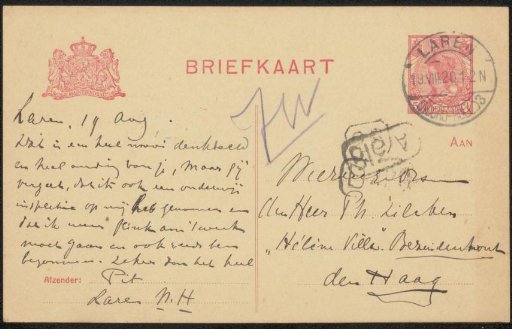 BRIEFKAART
LAREN
19.VIII.20.1-2N
AAN
ZW
Laren, 19 Aug.
Dat is een heel mooi denkbeeld
en heel aardig van je, Maar jij
vergeet, dat ik ook een onderwijs
inspectie op mij heb genomen en
dat ik weer
moet gaan en ook reeds ben
begonnen. Zeker dan het heel
Afzender: Pit
Laren N.H
den Heer Ph. Zilcken
"Hélène Villa" Bezuidenhout
den Haag